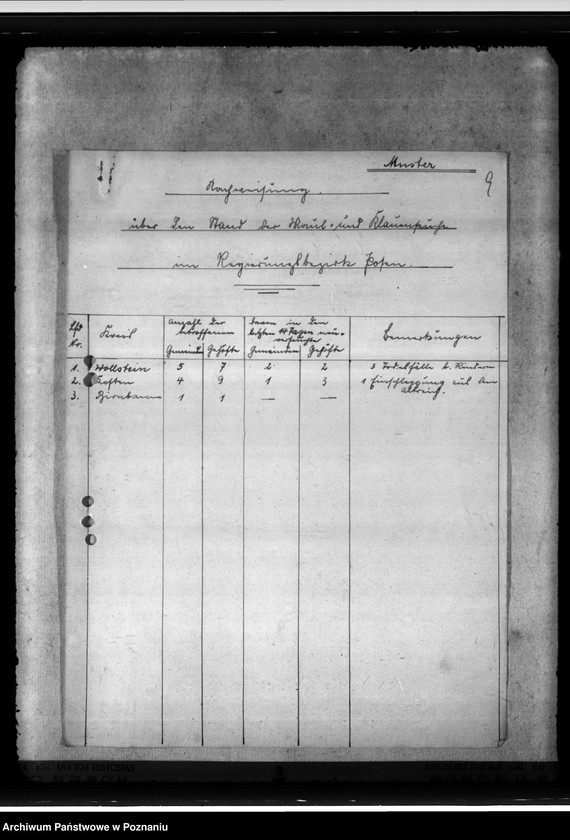 Muster
9
Nachweisung.
über den Stand der Maul- und Klauenseuche
im Regierungsbezirk Posen.
Lfd. Nr. Kreis Anzahl der betroffenen Gemeinden Gehöfte davon in den letzten 14 Tagen neu verseuchte Gemeinden Gehöfte Bemerkungen
1. Wollstein 5 7 2 2 3 Todesfälle b. Rindern
2. Kosten 4 9 1 3 1 Einschleppung aus dem
Altreich.
3. Birnbaum 1 1 — —
Archiwum Państwowe w Poznaniu